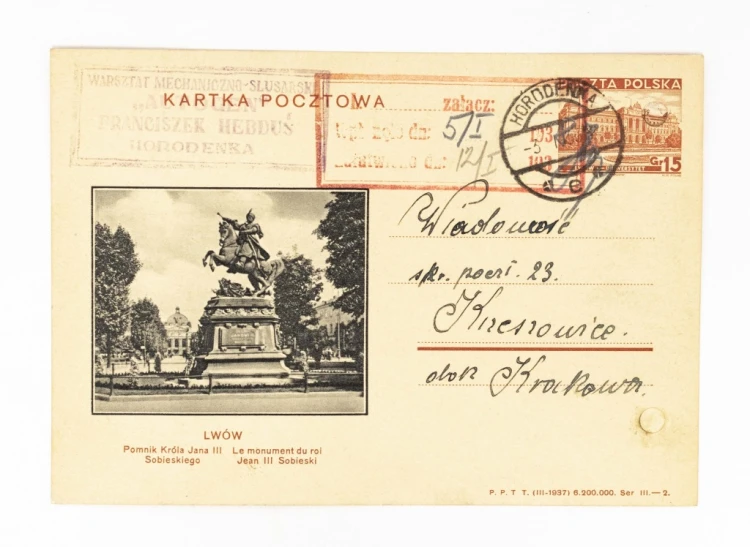 WARSZTAT MECHANICZNO-ŚLUSARSKI
FRANCISZEK HEBDUŚ
HORODENKA
KARTKA POCZTOWA
załącz:
dn: 5/I 193
dn: 12/I 193
HORODENKA 1
-5.
e
POCZTA POLSKA
Gr 15
Wiadomość
skr. poczt. 23.
Krzeszowice.
obok Krakowa.
LWÓW
Pomnik Króla Jana III
Sobieskiego
Le monument du roi
Jean III Sobieski
P. P. T. T. (III-1937) 6.200.000. Ser III.—2.